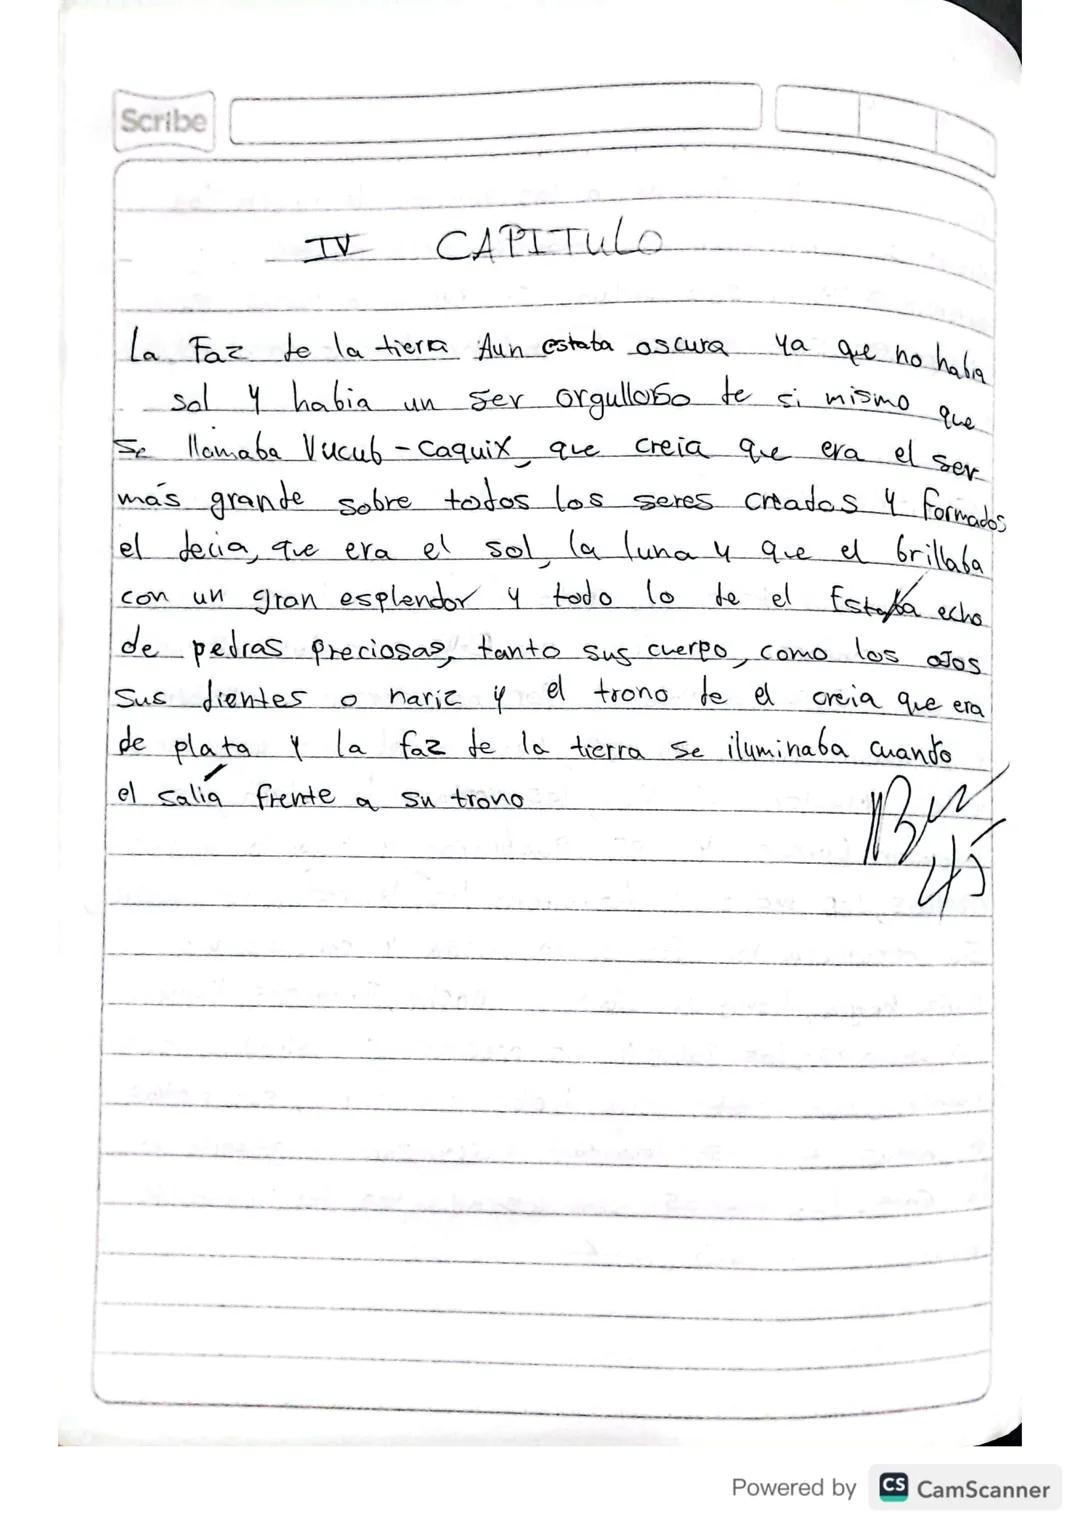 Scribe
IV CAPITULO
La Faz de la tierra Aun estaba oscura ya que no habia
sol y habia un ser orgulloso de si mismo que
se llamaba Vucub-Caquix, que creia que era el ser
más grande sobre todos los seres creados y formados
el decia, que era el sol, la luna y que el brillaba
con un gran esplendor y todo lo de el Estaba echo
de pedras preciosas, tanto sus cuerpo, como los ojos
sus dientes o nariz y el trono de el creia que era
de plata y la faz de la tierra se iluminaba cuando
el salía frente a su trono
Powered by CS CamScanner